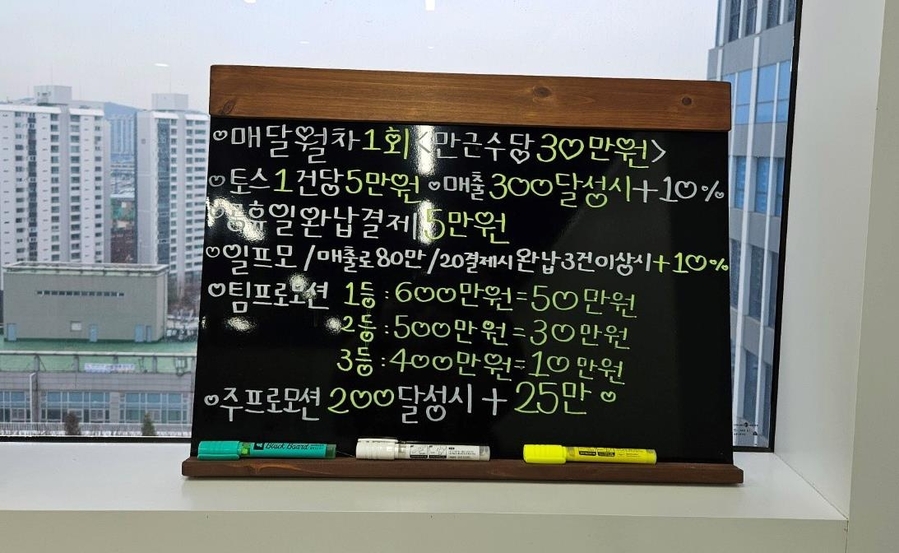 매달월차1회 <만근수당 30만원>
토스1건당5만원 매출300달성시+10%
휴일완납결제 5만원
일프모 /매출로80만/20결제시 완납3건이상시+10%
팀프로모션 1등 : 600만원=50만원
2등 : 500만원=30만원
3등 : 400만원=10만원
주프로모션 200달성시 + 25만
Black Board